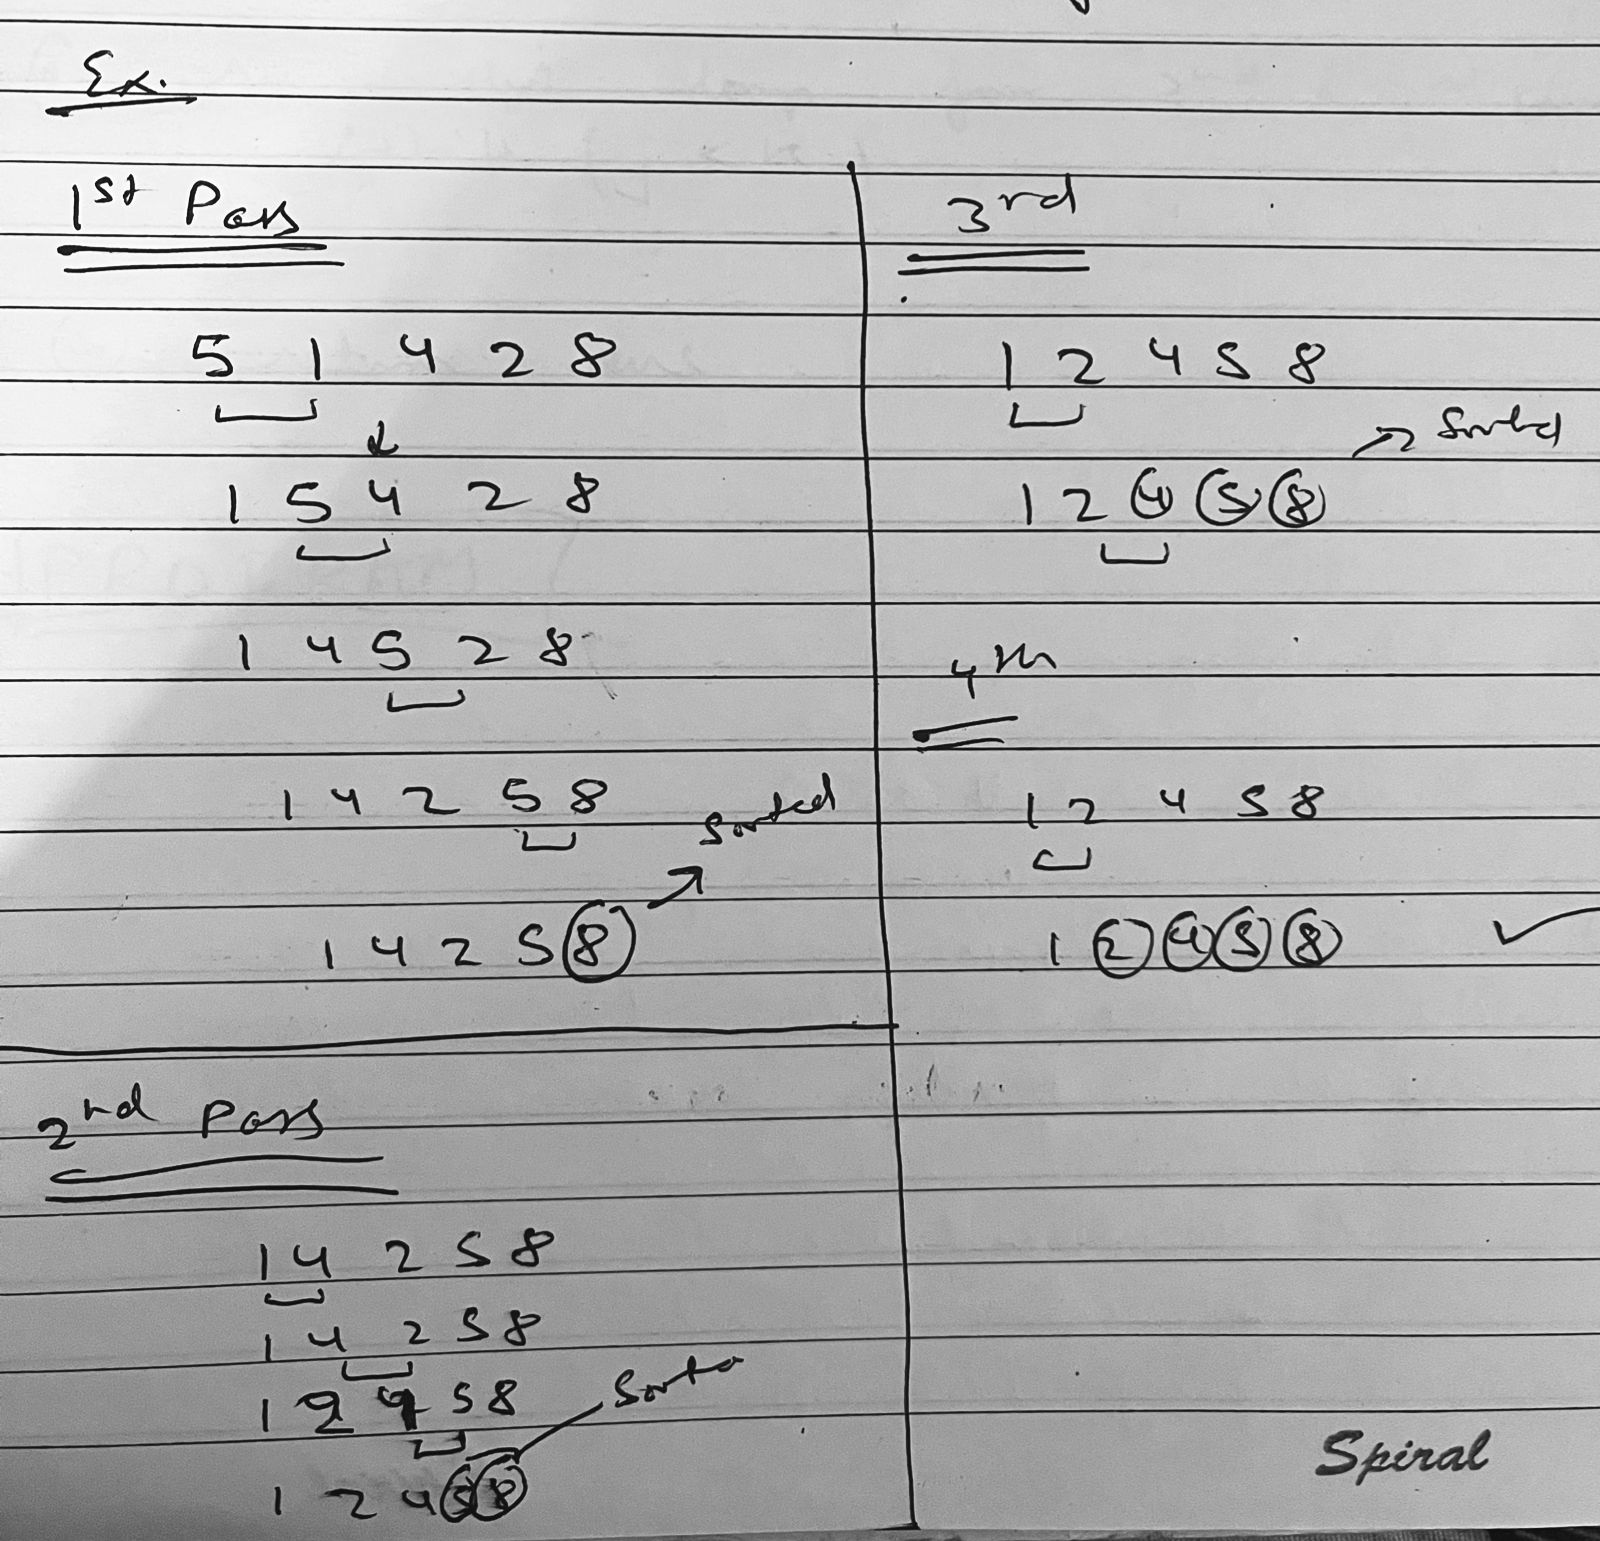 Ex.
1st Pass
5 1 4 2 8
1 5 4 2 8
1 4 5 2 8
1 4 2 5 8
Sorted
1 4 2 5 8
2nd Pass
1 4 2 5 8
1 4 2 5 8
1 2 4 5 8
Sorte
1 2 4 5 8
3rd
1 2 4 5 8
Sorted
1 2 4 5 8
4th
1 2 4 5 8
1 2 4 5 8
Spiral